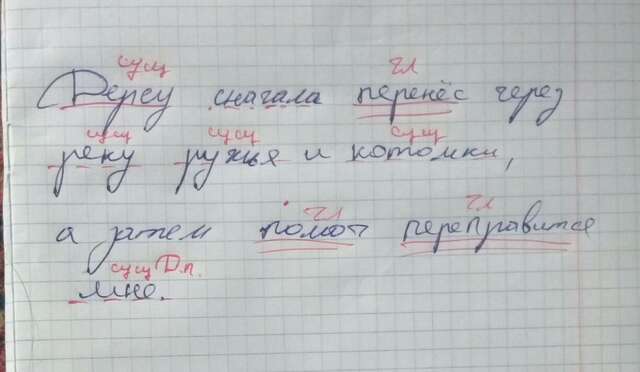 сущ гл
Дерсу сначала перенёс через
сущ сущ сущ
реку ружья и котомки,
гл гл
а затем помог переправится
сущ Д.п.
мне.